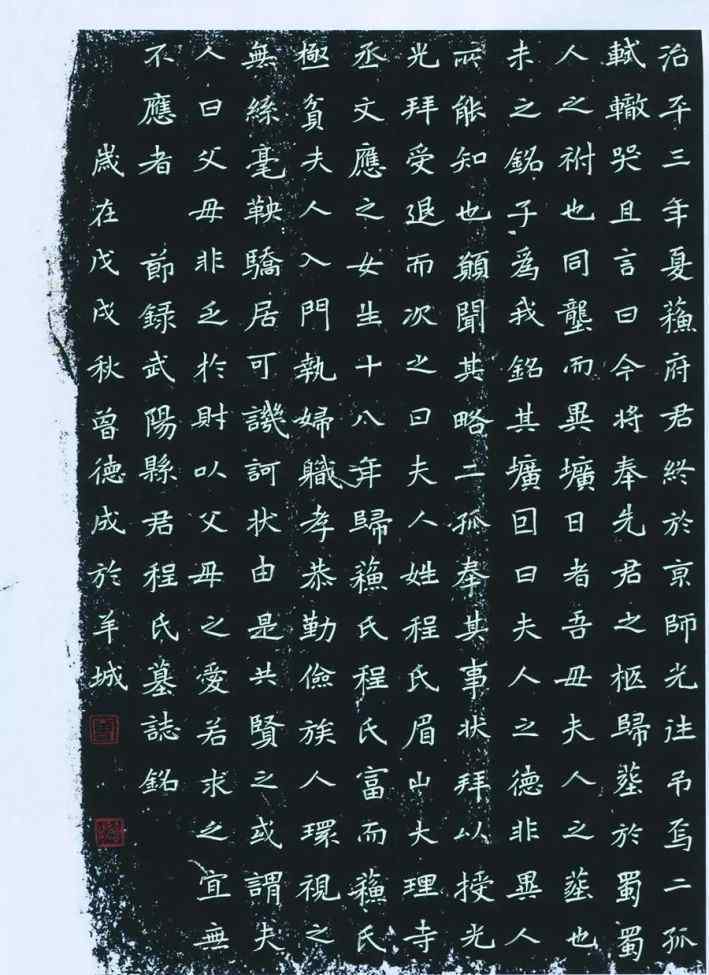 治平三年夏蘓府君終於京師光往弔焉二孤
軾轍哭且言曰今將奉先君之柩歸塟於蜀蜀
人之祔也同壟而異壙日者吾母夫人之塟也
未之銘子爲我銘其壙因曰夫人之德非異人
所能知也願聞其略二孤奉其事狀拜以授光
光拜受退而次之曰夫人姓程氏眉山大理寺
丞文應之女生十八年歸蘓氏程氏富而蘓氏
極貧夫人入門執婦職孝恭勤儉族人環視之
無絲毫鞅驕居可譏訶狀由是共賢之或謂夫
人曰父母非乏於財以父母之愛若求之宜無
不應者 節録武陽縣君程氏墓誌銘
歲在戊戌秋曾德成於羊城